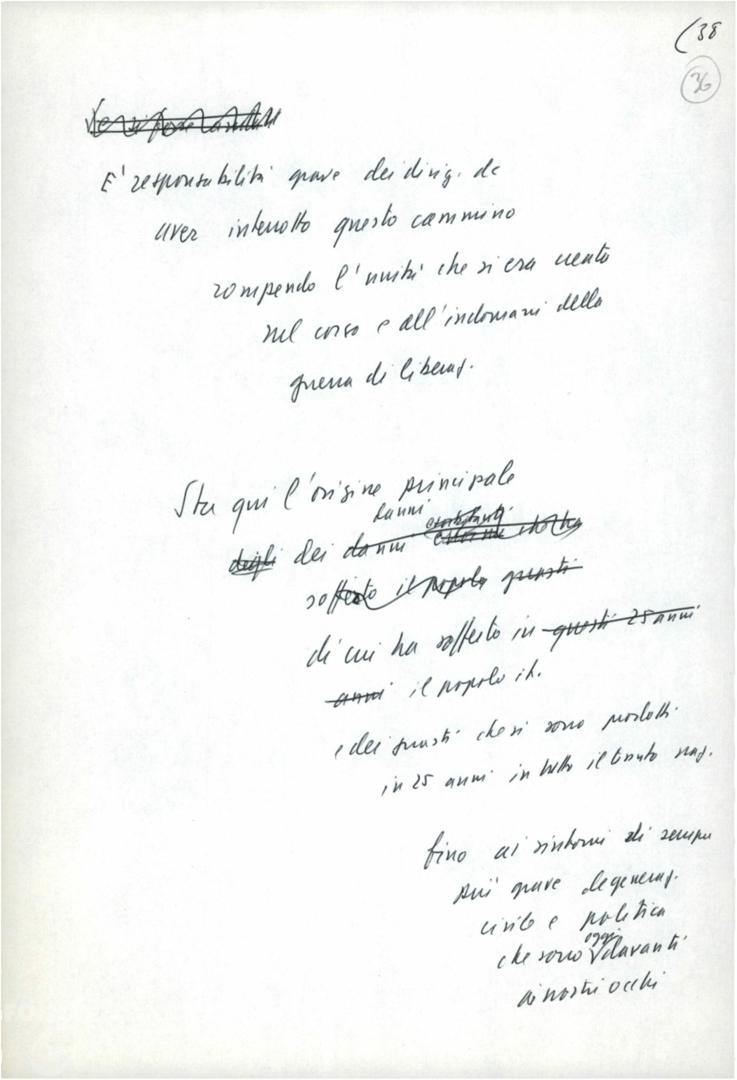 (38
36
E' responsabilità grave dei dirig. dc
aver interrotto questo cammino
rompendo l'unità che si era creata
nel corso e all'indomani della
guerra di liberaz.
Sta qui l'origine principale
danni
degli dei danni che ha
sofferto il popolo questi
di cui ha sofferto in questi 25 anni
anni il popolo it.
e dei guasti che si sono prodotti
in 25 anni in tutto il tessuto naz.
fino ai sintomi di sempre
più grave degeneraz.
civile e politica
oggi
che sono √ davanti
ai nostri occhi